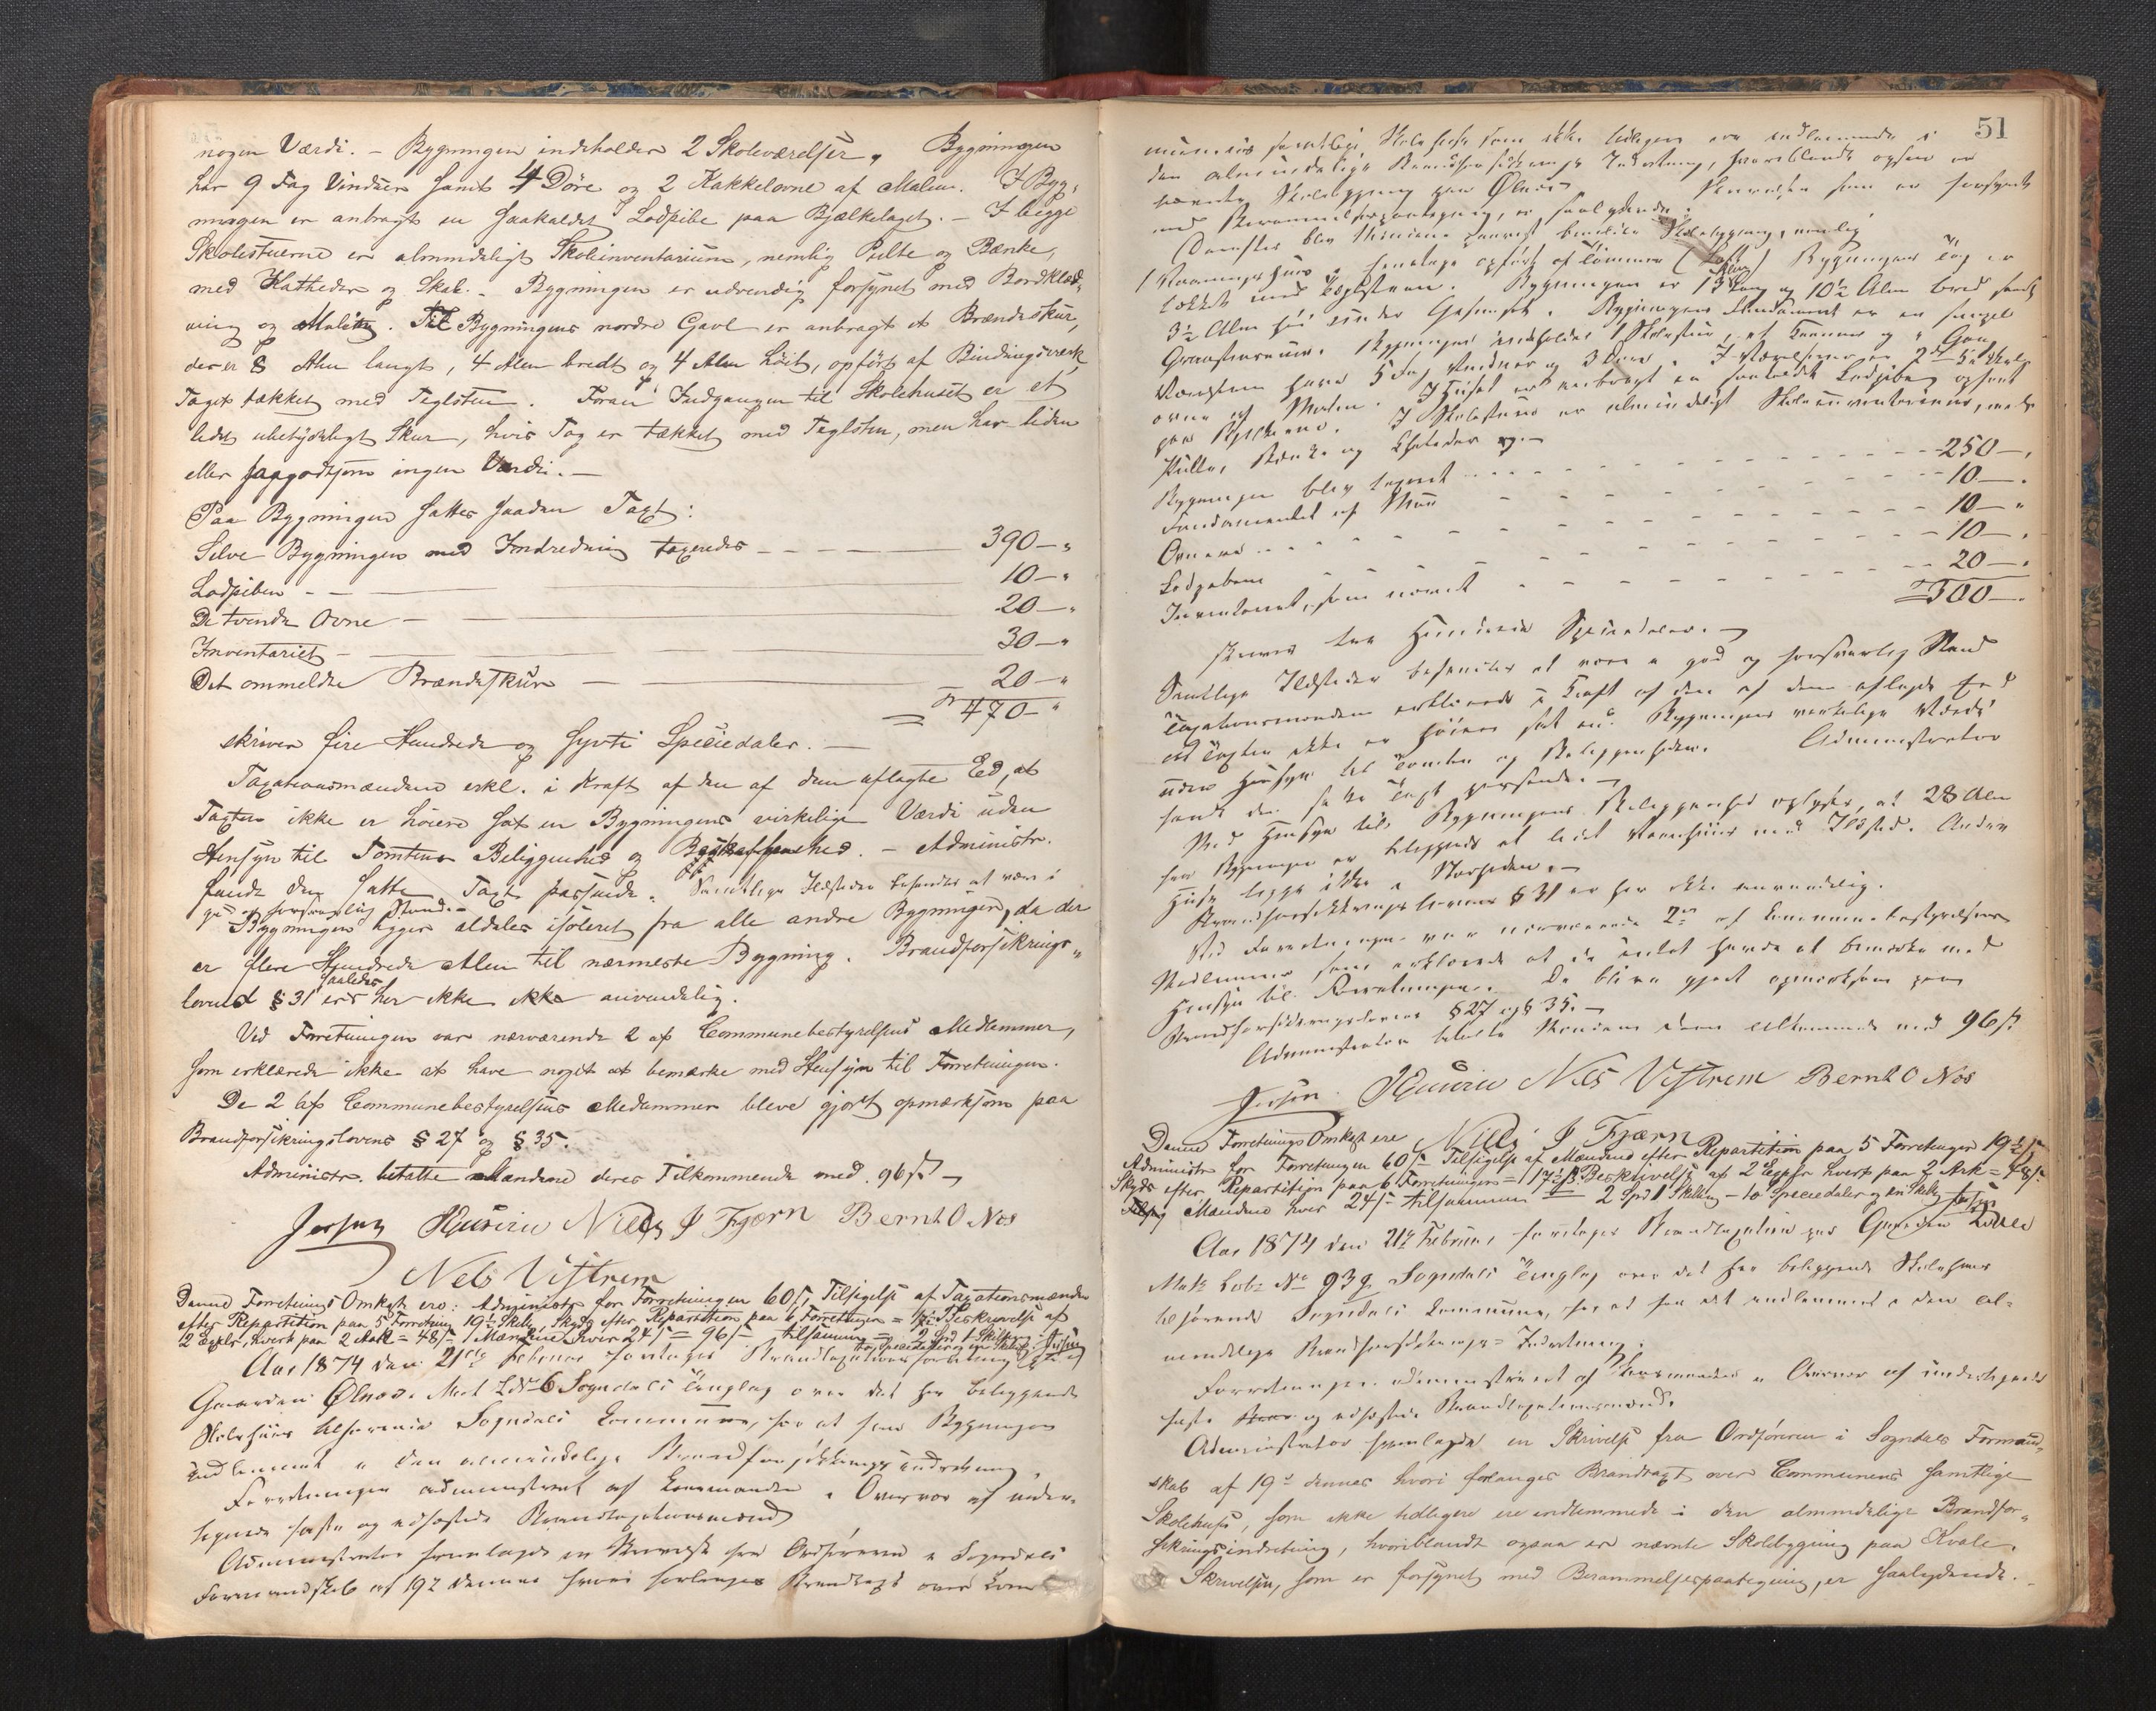 nogen Værdi. – Bygningen indeholder 2 Skoleværelser, Bygningen
har 9 Fag Vinduer samt 4 Døre og 2 Kakkelovne af Malm. I Byg-
ningen er anbragt en saakaldet Lodpibe paa Bjælkelaget. – I begge
Skolestuerne er almindeligt Skoleinventarium, nemlig Pulte og Bænke,
med Katheder og Skab. – Bygningen er udvendig forsynet med Bordklæd-
ning og Maling. Til Bygningens nordre Gavl er anbragt et Brændeskur,
der er 8 Alen langt, 4 Alen bredt og 4 Alen høit, opført af Bindingsværk,
Taget tækket med Teglsten. Foran Indgangen til Skolehuset er et
lidet ubetydeligt Skur, hvis Tag er tækket med Teglsten, men har liden
eller saagodtsom ingen Værdi. –
Paa Bygningen sattes saadan Taxt:
Selve Bygningen med Indredning taxeredes – – – 390 – "
Lodpiben – – 10 – "
De tvende Ovne – 20 – "
Inventariet – 30 – "
Det ommeldte Brændeskur – 20 – "
= 470 – "
skriver fire Hundrede og sytti Speciedaler. –
Taxationsmændene erkl. i Kraft af den af dem aflagte Ed, at
Taxten ikke er høiere sat en Bygningens virkelige Værdi uden
Hensyn til Tomtens Beliggenhed og Beskaffenhed. – Administr.
fandt den satte Taxt passende. Samtlige Ildsteder befandtes at være i
god og forsvarlig Stand. –
Bygningen ligger aldeles isoleret fra alle andre Bygninger, da der
er flere Hundrede Alen til nærmeste Bygning. Brandforsikrings-
lovens § 31 er saaledes her ikke ikke anvendelig.
Ved Forretningen var nærværende 2 af Communebestyrelsens Medlemmer,
som erklærede ikke at have noget at bemærke med Hensyn til Forretningen.
De 2 af Communebestyrelsens Medlemmer bleve gjort opmærksom paa
Brandforsikringslovens § 27 og § 35.
Administr. betalte Mændene deres Tilkommende med 96 ß –
Jersing Husum Niels J Fjærn Bernt O Nes
Nels Vestrem
Denne Forretnings Omkost. ere: Administr. for Forretningen 60 ß, Tilsigelse af Taxationsmænden
efter Repartition paa 5 Forretning 19½ Skill., Skyds efter Repartition paa 6 Forretninger = 17½ ß Beskrivelse af
2 Expler. hvert paa 2 Ark = 48 ß Mændene hver 24 ß = 96 ß – tilsammen = 2 Spd 1 Skilling.
to Speciedaler og en Skilling.
Aar 1874 den 21de Februar foretoges Brandtaxationsforretning paa
Gaarden Ølnes. Mat. Lb. 6 Sogndals Tinglag over det her beliggende
Skolehuus tilhørende Sogndals Commune, for at faa Bygningen
indlemmet i den almindelige Brandforsikkringsindretning.
Forretningen administreret af Lensmanden i Overvær af under-
tegnede faste og edfæstede Brandtaxationsmænd.
Administrator fremlagde en Skrivelse fra Ordføreren i Sogndals
Formandskab af 19de dennes hvori forlanges Brandtaxt over Com-
51
munens samtlige Skolehuse som ikke tidligere ere indlemmede i
den almindelige Brandforsikrings Indretning, hvoriblandt ogsaa er
nævnte Skolebygning paa Ølnes. Skrivelsen som er forsynet
med Berammelsespaategning, er saalydende:
Derefter blev Husene paavist bemeldte Skolebygning, nemlig
1 Vaaningshuus, 1 Etage opført af Tømmer (Laft) Bygningens Tag er
tækket med Tagsteen. Bygningen er 13 Alen lang og 10½ Alen bred samt
3½ Alen høi under Gesimset. Bygningens Fundament er en
Graasteensmuur. Bygningen indeholder 1 Skolestue, et Kammer og 1 Gang.
Værelserne have 5 Fag Vinduer og 3 Døre. I Værelserne er 2de Kakkel-
ovne af Malm. I Huset er anbragt en saakaldt Lodpibe, opført
paa Bjælkerne. I Skolestuen er almindeligt Skoleinventarium, med
Pulte, Bænke og Chateder og. –
Bygningen blev taxeret – – – 250 – "
Fundamentet af Muur – – – 10 – "
Ovnene – – – 10 – "
Lodpiben – – – 10 – "
Inventariet, som nævnt – – – 20 – "
= 300 – "
skriver tre Hundrede Speciedaler. –
Samtlige Ildsteder befandtes at være i god og forsvarlig Stand
Taxationsmændene erklærede i Kraft af den af dem aflagte Ed
at Taxten ikke er høiere sat end Bygningens virkelige Værdi
uden Hensyn til Tomten og Beliggenheden. Administrator
fandt den satte Taxt passende. –
Med Hensyn til Bygningens Beliggenhed oplystes, at 28 Alen
fra Bygningen er beliggende et lidet Vaanhuus med Ildsted. Andre
Huse ligge ikke i Nærheden. –
Brandforsikkringslovens § 31 er her ikke anvendelig.
Ved Forretningen var nærværende 2de af Kommunebestyrelsens
Medlemmer som erklærede at de intet havde at bemærke med
Hensyn til Forretningen. De bleve gjort opmærksom paa
Brandforsikringslovens § 27 og § 35. –
Administrator betalte Mændene deres Tilkommende med 96 ß
Jersing Husum Nels Vestrem Bernt O Nes
Niels J Fjærn
Denne Forretnings Omkost. ere
Administr. for Forretningen 60 ß – Tilsigelse af Mændene efter Repartition paa 5 Forretninger 19½ ß
Skyds efter Repartition paa 6 Forretninger = 17½ ß. Beskrivelse af 2 Expler. hvert paa 2 Ark = 48 ß.
Mændene hver 24 ß – tilsammen = 2 Spd 1 Skilling – to Speciedaler og en Skilling
Aar 1874 den 21de Februar, foretoges Brandtaxation paa Gaarden Kvale
Matr. Lob. No 93 Sogndals Tinglag over det her beliggende Skolehuus
tilhørende Sogndals Commune, for at faa det indlemmet i den al-
mindelige Brandforsikrings-Indretning.
Forretningen administreret af Lensmanden i Overvær af undertegnede
faste og edfæstede Brandtaxationsmænd.
Administrator fremlagde en Skrivelse fra Ordføreren i Sogndals Formand-
skab af 19de dennes hvori forlanges Brandtaxt over Communens samtlige
Skolehuse, som ikke tidligere ere indlemmede i den almindelige Brandfor-
sikringsindretning, hvoriblandt ogsaa er nævnte Skolebygning paa Kvale.
Skrivelsen, som er forsynet med Berammelsespaategning, er saalydende. –